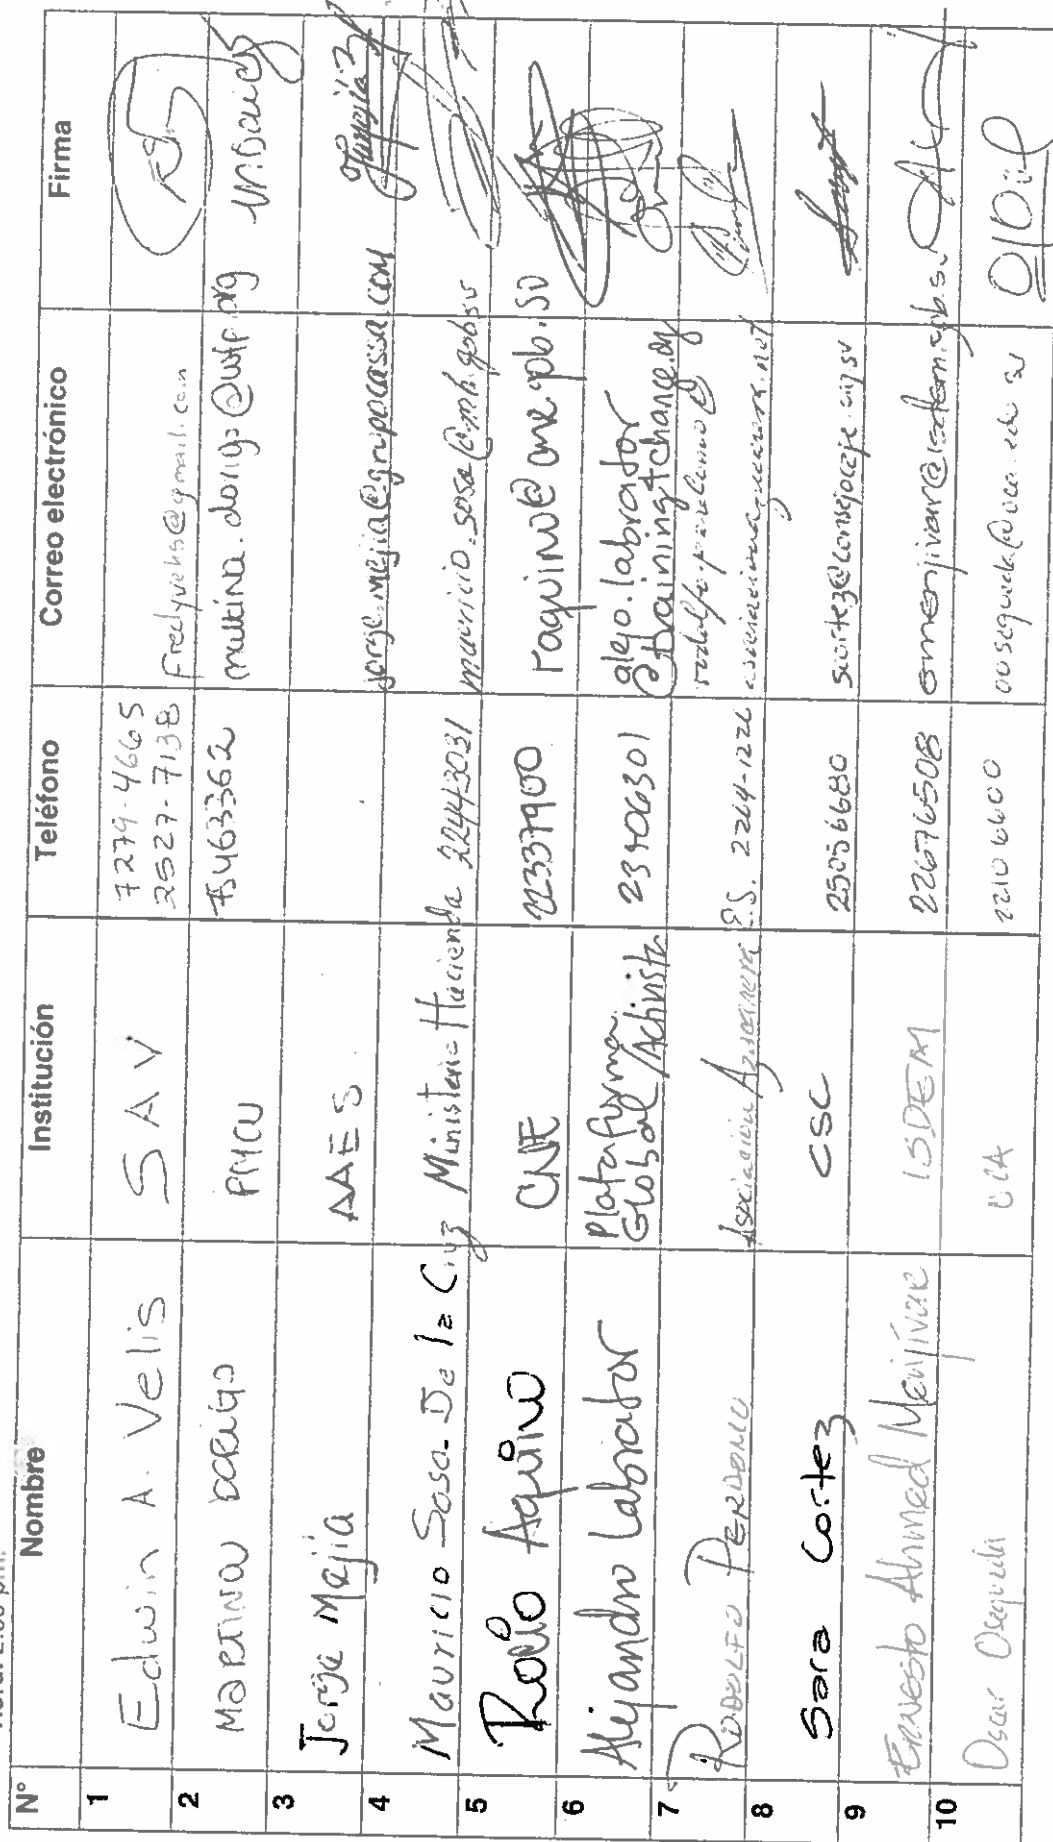 N° Nombre Institución Teléfono Correo electrónico Firma
1 Edwin A. Velis SAV 7279-4665
2527-7138 @gmail.com
2 Martina Dorigo PMA 75463362 martina.dorigo@wfp.org
3 Jorge Mejía AAES jorge.mejia@grupocassa.com
4 Mauricio Sosa De la Cruz Ministerio Hacienda 22443031 mauricio.sosa@mh.gob.sv
5 Rocío Aquino CNE 22337900 raquino@cne.gob.sv
6 Alejandro Labrador Plataforma
Global/Activista 23406301 alejo.labrador
@training4change.org
7 Rodolfo Perdomo Asociación Azucarera E.S. 2264-1226 rodolfo.perdomo@
8 Sara Cortez CSC 25056680
9 Ernesto Ahmed Menjívar ISDEM 22676508 emenjivar@isdem.gob.sv
10 Oscar Osegueda UCA 22106600 @uca.edu.sv